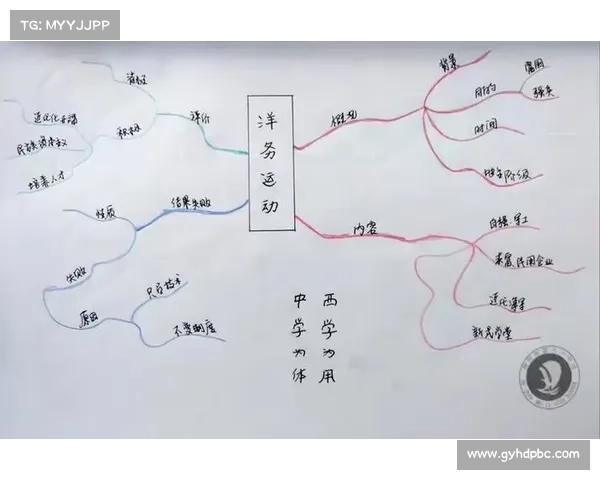 TG: MYYJJPP
洋务运动
概况
背景
目的
富国
强兵
时间
内容
自强:军工
求富:民用企业
近代海军
新式学堂
评价
消极
积极
近代化
民族资本主义
培养人才
结果失败
性质
失败
原因
只学技术
不变制度
中学为体
西学为用
www.gyhdpbc.com